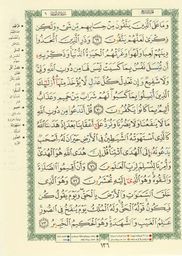 وَمَا عَلَى ٱلَّذِينَ يَتَّقُونَ مِنْ حِسَابِهِم مِّن شَىْءٍ وَلَٰكِن
ذِكْرَىٰ لَعَلَّهُمْ يَتَّقُونَ ٦٩ وَذَرِ ٱلَّذِينَ ٱتَّخَذُوا۟
دِينَهُمْ لَعِبًا وَلَهْوًا وَغَرَّتْهُمُ ٱلْحَيَوٰةُ ٱلدُّنْيَا وَذَكِّرْ بِهِۦٓ
أَن تُبْسَلَ نَفْسٌۢ بِمَا كَسَبَتْ لَيْسَ لَهَا مِن دُونِ ٱللَّهِ وَلِىٌّ
وَلَا شَفِيعٌ وَإِن تَعْدِلْ كُلَّ عَدْلٍ لَّا يُؤْخَذْ مِنْهَآ أُو۟لَٰٓئِكَ
ٱلَّذِينَ أُبْسِلُوا۟ بِمَا كَسَبُوا۟ لَهُمْ شَرَابٌ مِّنْ حَمِيمٍ وَعَذَابٌ
أَلِيمٌۢ بِمَا كَانُوا۟ يَكْفُرُونَ ٧٠ قُلْ أَنَدْعُوا۟ مِن دُونِ ٱللَّهِ
مَا لَا يَنفَعُنَا وَلَا يَضُرُّنَا وَنُرَدُّ عَلَىٰٓ أَعْقَابِنَا بَعْدَ إِذْ هَدَىٰنَا ٱللَّهُ
كَٱلَّذِى ٱسْتَهْوَتْهُ ٱلشَّيَٰطِينُ فِى ٱلْأَرْضِ حَيْرَانَ لَهُۥٓ أَصْحَٰبٌ
يَدْعُونَهُۥٓ إِلَى ٱلْهُدَى ٱئْتِنَا قُلْ إِنَّ هُدَى ٱللَّهِ هُوَ ٱلْهُدَىٰ
وَأُمِرْنَا لِنُسْلِمَ لِرَبِّ ٱلْعَٰلَمِينَ ٧١ وَأَنْ أَقِيمُوا۟ ٱلصَّلَوٰةَ
وَٱتَّقُوهُ وَهُوَ ٱلَّذِىٓ إِلَيْهِ تُحْشَرُونَ ٧٢ وَهُوَ ٱلَّذِى
خَلَقَ ٱلسَّمَٰوَٰتِ وَٱلْأَرْضَ بِٱلْحَقِّ وَيَوْمَ
يَقُولُ كُن فَيَكُونُ قَوْلُهُ ٱلْحَقُّ وَلَهُ ٱلْمُلْكُ يَوْمَ يُنفَخُ فِى ٱلصُّورِ
عَٰلِمُ ٱلْغَيْبِ وَٱلشَّهَٰدَةِ وَهُوَ ٱلْحَكِيمُ ٱلْخَبِيرُ ٧٣
١٣٦